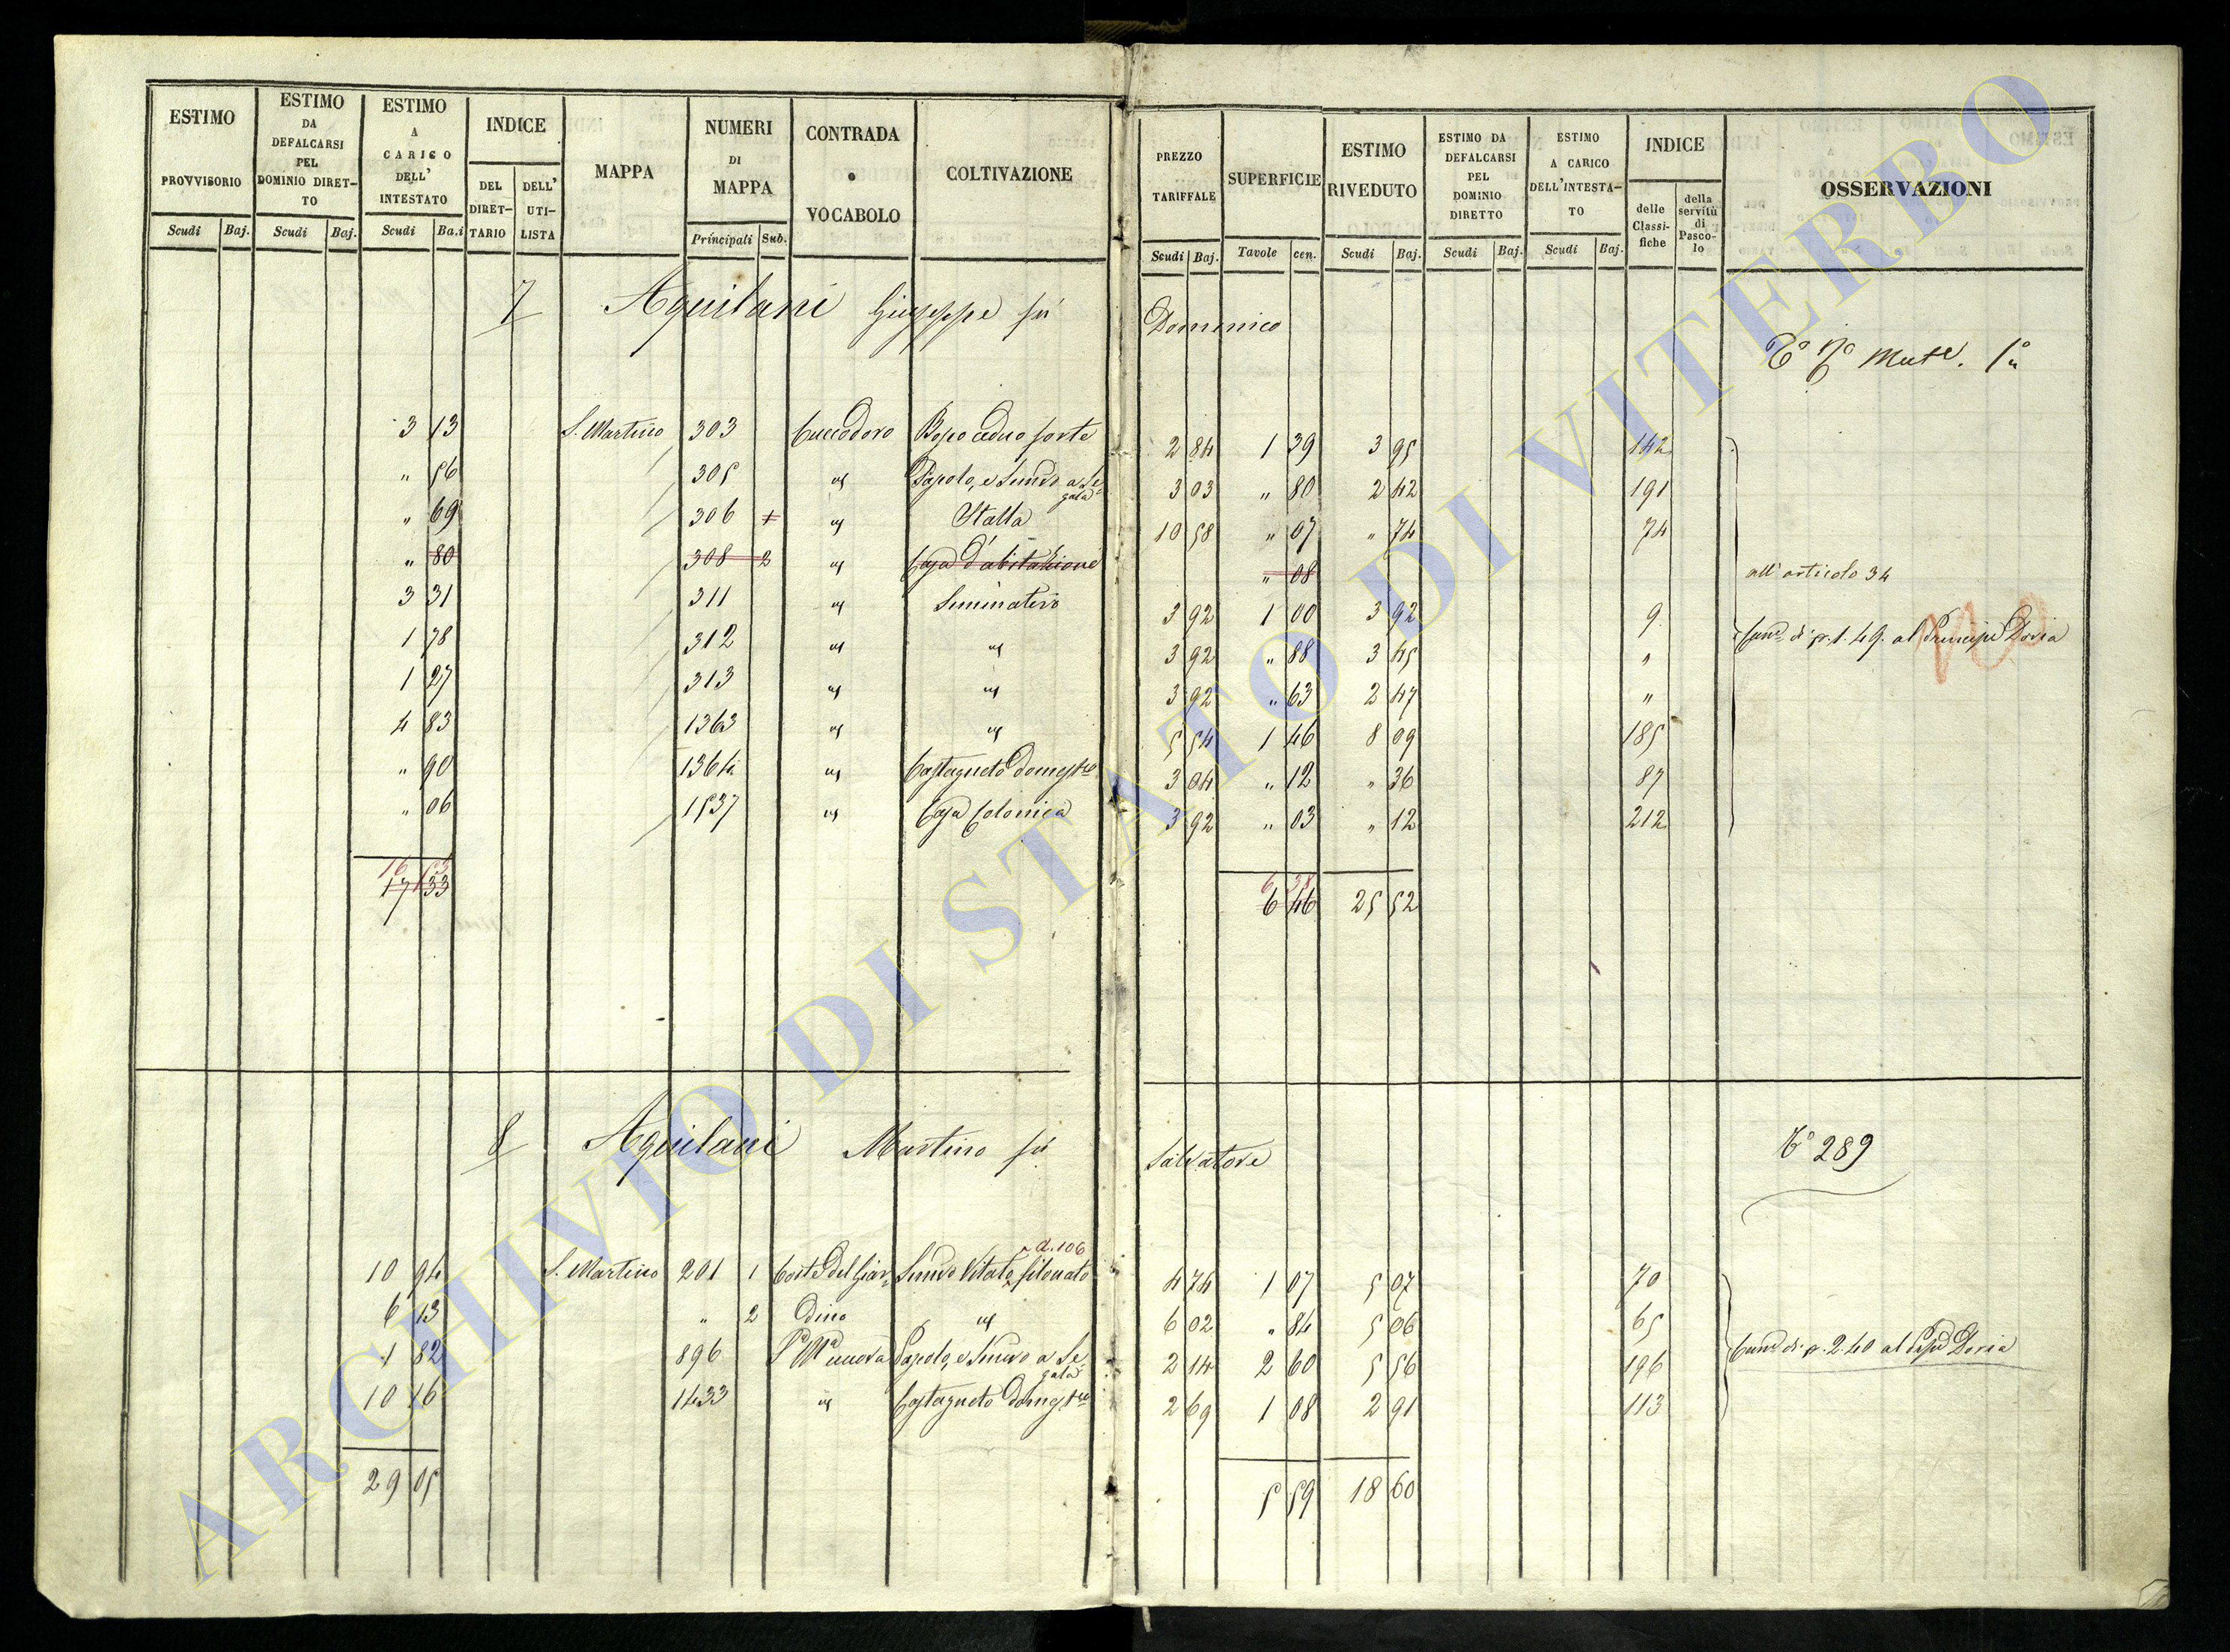 ESTIMO PROVVISORIO Scudi Baj.
ESTIMO DA DEFALCARSI PEL DOMINIO DIRET-TO Scudi Baj.
ESTIMO A CARICO DELL' INTESTATO Scudi Ba.i
INDICE DEL DIRET-TARIO DELL' UTI-LISTA
MAPPA
NUMERI DI MAPPA Principali Sub.
CONTRADA o VOCABOLO
COLTIVAZIONE
PREZZO TARIFFALE Scudi Baj.
SUPERFICIE Tavole cen.
ESTIMO RIVEDUTO Scudi Baj.
ESTIMO DA DEFALCARSI PEL DOMINIO DIRETTO Scudi Baj.
ESTIMO A CARICO DELL'INTESTA-TO Scudi Baj.
INDICE delle Classi-fiche della servitù di Pasco-lo
OSSERVAZIONI
7 Aquilani Giuseppe fù Domenico
Mut.e
3 13 S. Martino 303 Cuccodoro Bosco ceduo forte 2 84 1 39 3 95 142
" 56 305 " Pascolo, e Semvo a Segala 3 03 " 80 2 42 191
" 69 306 1 " Stalla 10 58 " 07 " 74 74
" 80 308 2 " Casa d'abitazione " 08 all'articolo 34
3 31 311 " Seminativo 3 92 1 00 3 92 9
1 78 312 " " 3 92 " 88 3 45 " di 1.49. al Principe Doria
1 27 313 " " 3 92 " 63 2 47 "
4 83 1363 " " 5 54 1 46 8 09 185
" 90 1364 " Castagneto Domestco 3 04 " 12 " 36 87
" 06 1537 " Casa Colonica 3 92 " 03 " 12 212
16 53 6 38
17 33 6 46 25 52
8 Aquilani Martino fù Salvatore
289
a. 106
10 94 S. Martino 201 1 Corte del Giar= Semvo Vitato, filonato 4 74 1 07 5 07 70
6 13 " 2 dino " 6 02 " 84 5 06 65
1 82 896 nuova Pascolo, e Semvo a Segala 2 14 2 60 5 56 196 di 2.40 al Doria
10 16 1433 " Castagneto Domestco 2 69 1 08 2 91 113
29 05 5 59 18 60
ARCHIVIO DI STATO DI VITERBO